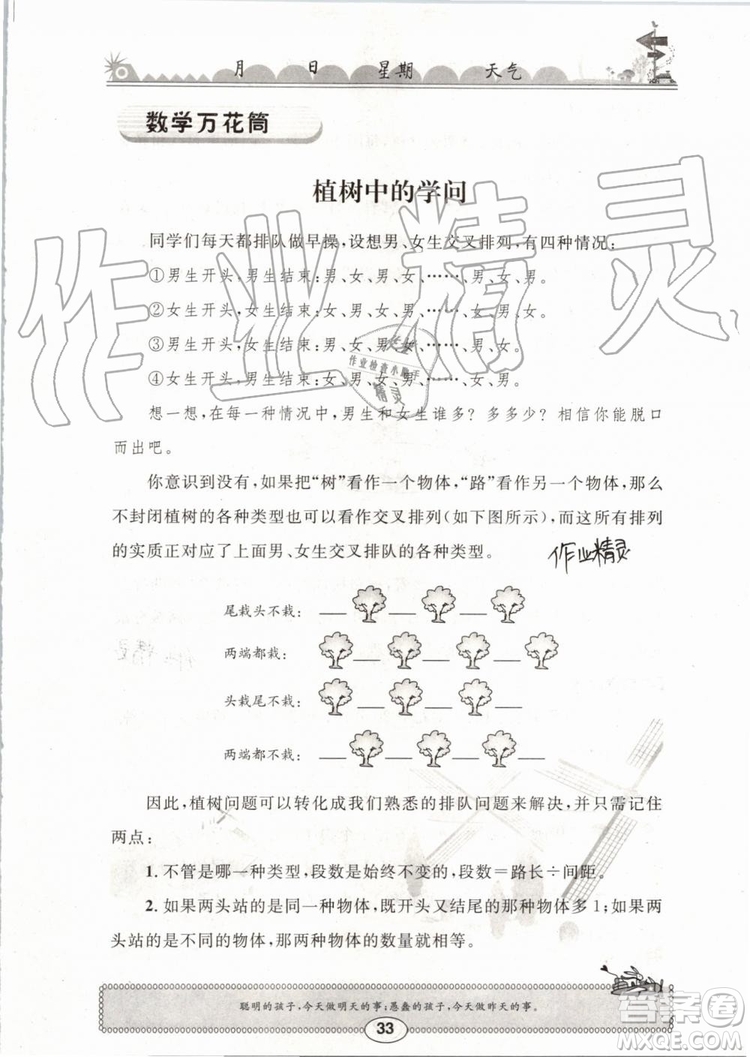 月 日 星期 天气
数学万花筒
植树中的学问
同学们每天都排队做早操，设想男、女生交叉排列，有四种情况：
①男生开头，男生结束：男、女、男、女、……、女、男。
②女生开头，女生结束：女、男、女、男、……、男、女。
③男生开头，女生结束：男、女、男、女、……、男、女。
④女生开头，男生结束：女、男、女、男、……、女、男。
想一想，在每一种情况中，男生和女生谁多？多多少？相信你能脱口
而出吧。
你意识到没有，如果把“树”看作一个物体，“路”看作另一个物体，那么
不封闭植树的各种类型也可以看作交叉排列（如下图所示），而这所有排列
的实质正对应了上面男、女生交叉排队的各种类型。
作业精灵
尾栽头不栽：
两端都栽：
头栽尾不栽：
两端都不栽：
因此，植树问题可以转化成我们熟悉的排队问题来解决，并只需记住
两点：
1. 不管是哪一种类型，段数是始终不变的，段数＝路长÷间距。
2. 如果两头站的是同一种物体，既开头又结尾的那种物体多1；如果两
头站的是不同的物体，那两种物体的数量就相等。
聪明的孩子，今天做明天的事；愚蠢的孩子，今天做昨天的事。
33
作业精灵
作业检查小助手
精灵
答案圈
MXQE.COM